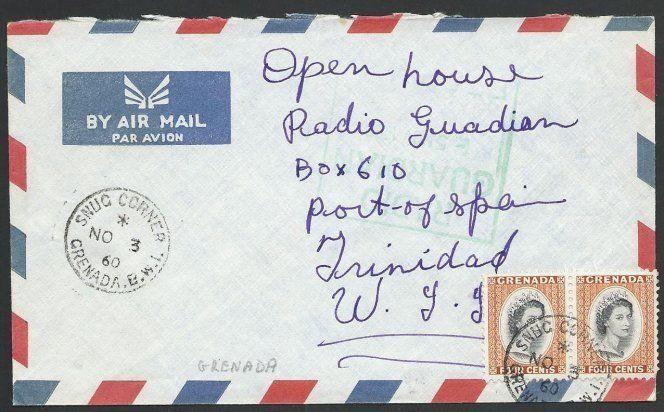 BY AIR MAIL
PAR AVION
Open house
Radio Guadian
Box 610
Port-of Spain
Trinidad
W. I.
SNUG CORNER
*
NO 3
60
GRENADA. B.W.I.
GRENADA
GUARDIAN
GRENADA
FOUR CENTS
GRENADA
FOUR CENTS
SNUG CORNER
*
NO 3
60